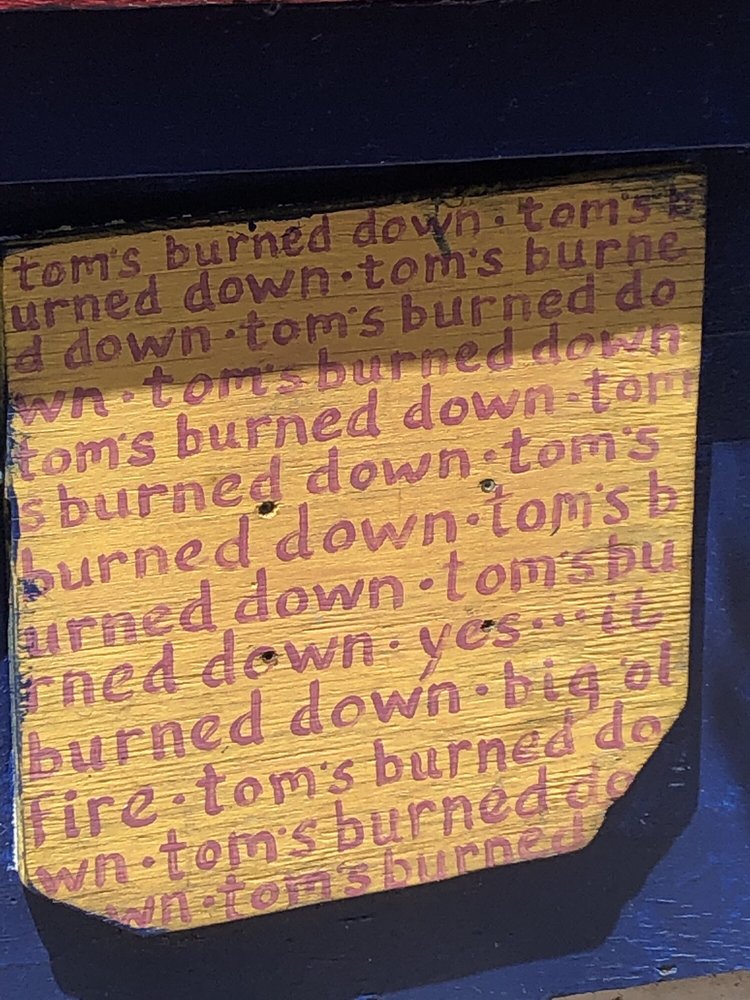 tom's burned down · tom's b
urned down · tom's burne
d down · tom's burned do
wn · tom's burned down
tom's burned down · tom
s burned down · tom's
burned down · tom's b
urned down · tom's bu
rned down · yes... it
burned down · big ol
fire · tom's burned do
wn · tom's burned do
wn · tom's burned